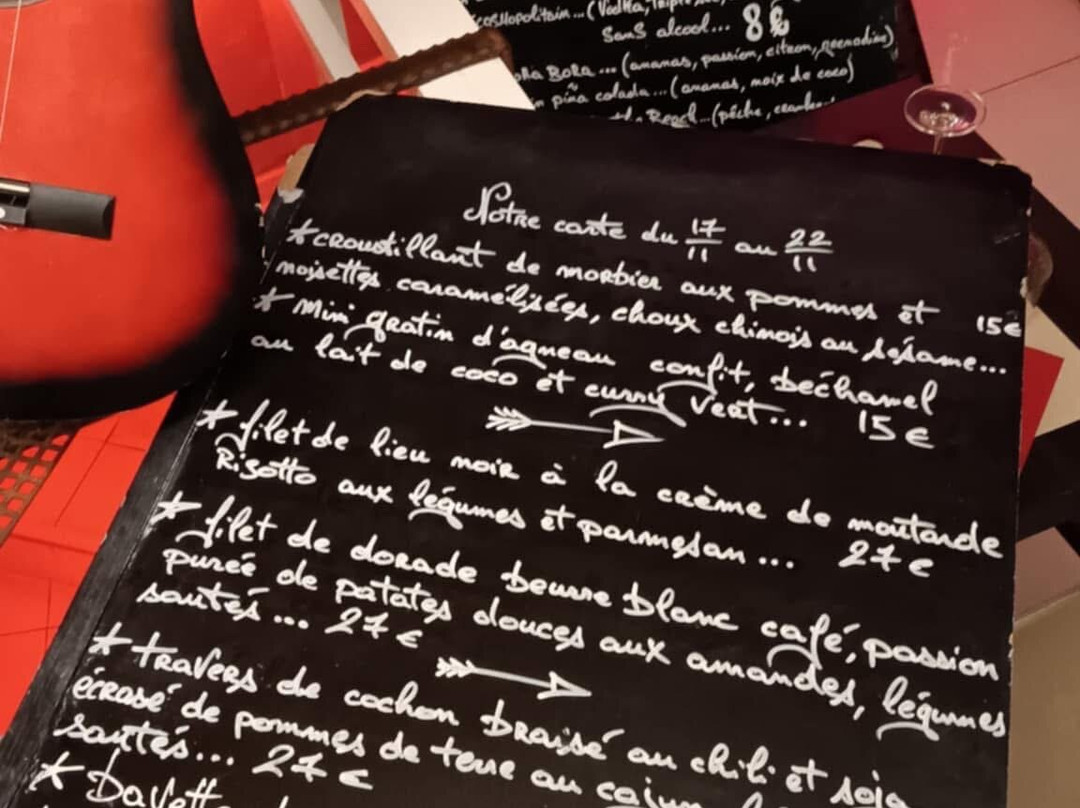 cosmopolitain...(Vodka, Triple
Sans alcool... 8€
ora Bora...(ananas, passion, citron, grenadine)
piña colada...(ananas, noix de coco)
Beach...(pêche,
Notre carte du 17/11 au 22/11
* croustillant de morbier aux pommes et
noisettes caramélisées, choux chinois au sésame... 15€
* Mini gratin d'agneau confit, béchamel
au lait de coco et curry vert... 15€
* filet de lieu noir à la crème de moutarde
Risotto aux légumes et parmesan... 27€
* filet de dorade beurre blanc café, passion
purée de patates douces aux amandes, légumes
sautés... 27€
* travers de cochon braisé au chili et soja
écrasé de pommes de terre au cajun
sautés... 27€
* Bavett